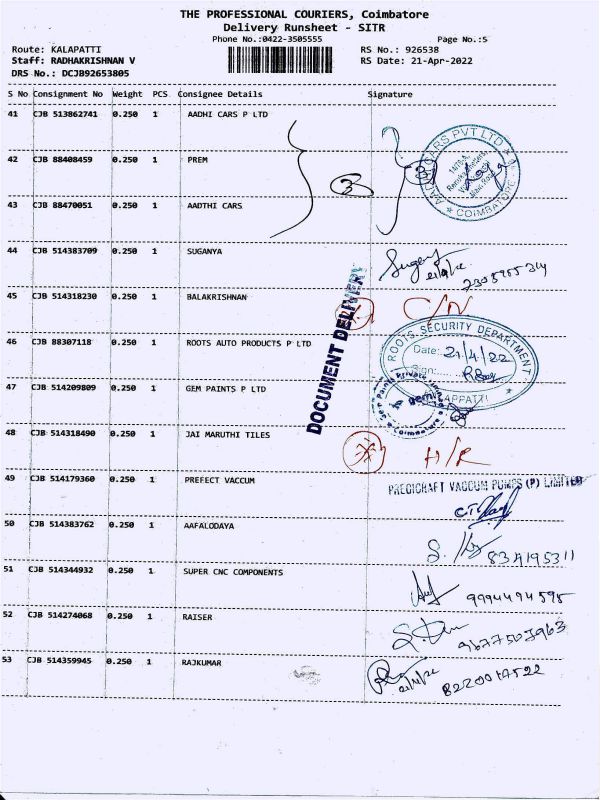 THE PROFESSIONAL COURIERS, Coimbatore
Delivery Runsheet - SITR
Phone No.:0422-3505555 Page No.:5
Route: KALAPATTI RS No.: 926538
Staff: RADHAKRISHNAN V RS Date: 21-Apr-2022
DRS No.: DCJB92653805
S No Consignment No Weight PCS Consignee Details Signature
41 CJB 513862741 0.250 1 AADHI CARS P LTD
42 CJB 88408459 0.250 1 PREM
3 3
AADHI CARS PVT LTD
COIMBATORE
43 CJB 88470051 0.250 1 AADTHI CARS
44 CJB 514383709 0.250 1 SUGANYA
45 CJB 514318230 0.250 1 BALAKRISHNAN
DOCUMENT DELIVERY
46 CJB 88307118 0.250 1 ROOTS AUTO PRODUCTS P LTD
ROOTS SECURITY DEPARTMENT
Date: 21/4/22
Sign:
47 CJB 514209809 0.250 1 GEM PAINTS P LTD
gem
48 CJB 514318490 0.250 1 JAI MARUTHI TILES
49 CJB 514179360 0.250 1 PREFECT VACCUM
PREDICRAFT VACCUM PUMPS (P) LIMITED
50 CJB 514383762 0.250 1 AAFALODAYA
51 CJB 514344932 0.250 1 SUPER CNC COMPONENTS
9994494595
52 CJB 514274068 0.250 1 RAISER
53 CJB 514359945 0.250 1 RAJKUMAR